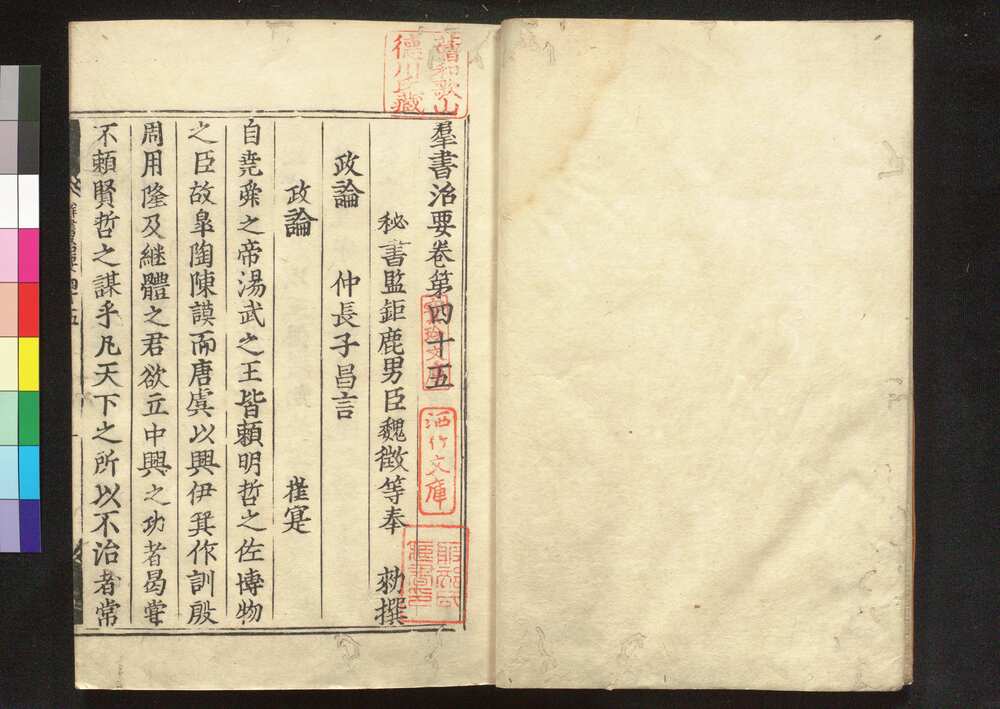 羣書治要卷第四十五
秘書監鉅鹿男臣魏徵等奉 勑撰
政論 仲長子昌言
政論 崔寔
自堯舜之帝湯武之王皆賴明哲之佐博物
之臣故皐陶陳謨而唐虞以興伊箕作訓殷
周用隆及継體之君欲立中興之功者曷甞
不賴賢哲之謀乎凡天下之所以不治者常
舊和歌山
德川氏藏
洒竹文庫